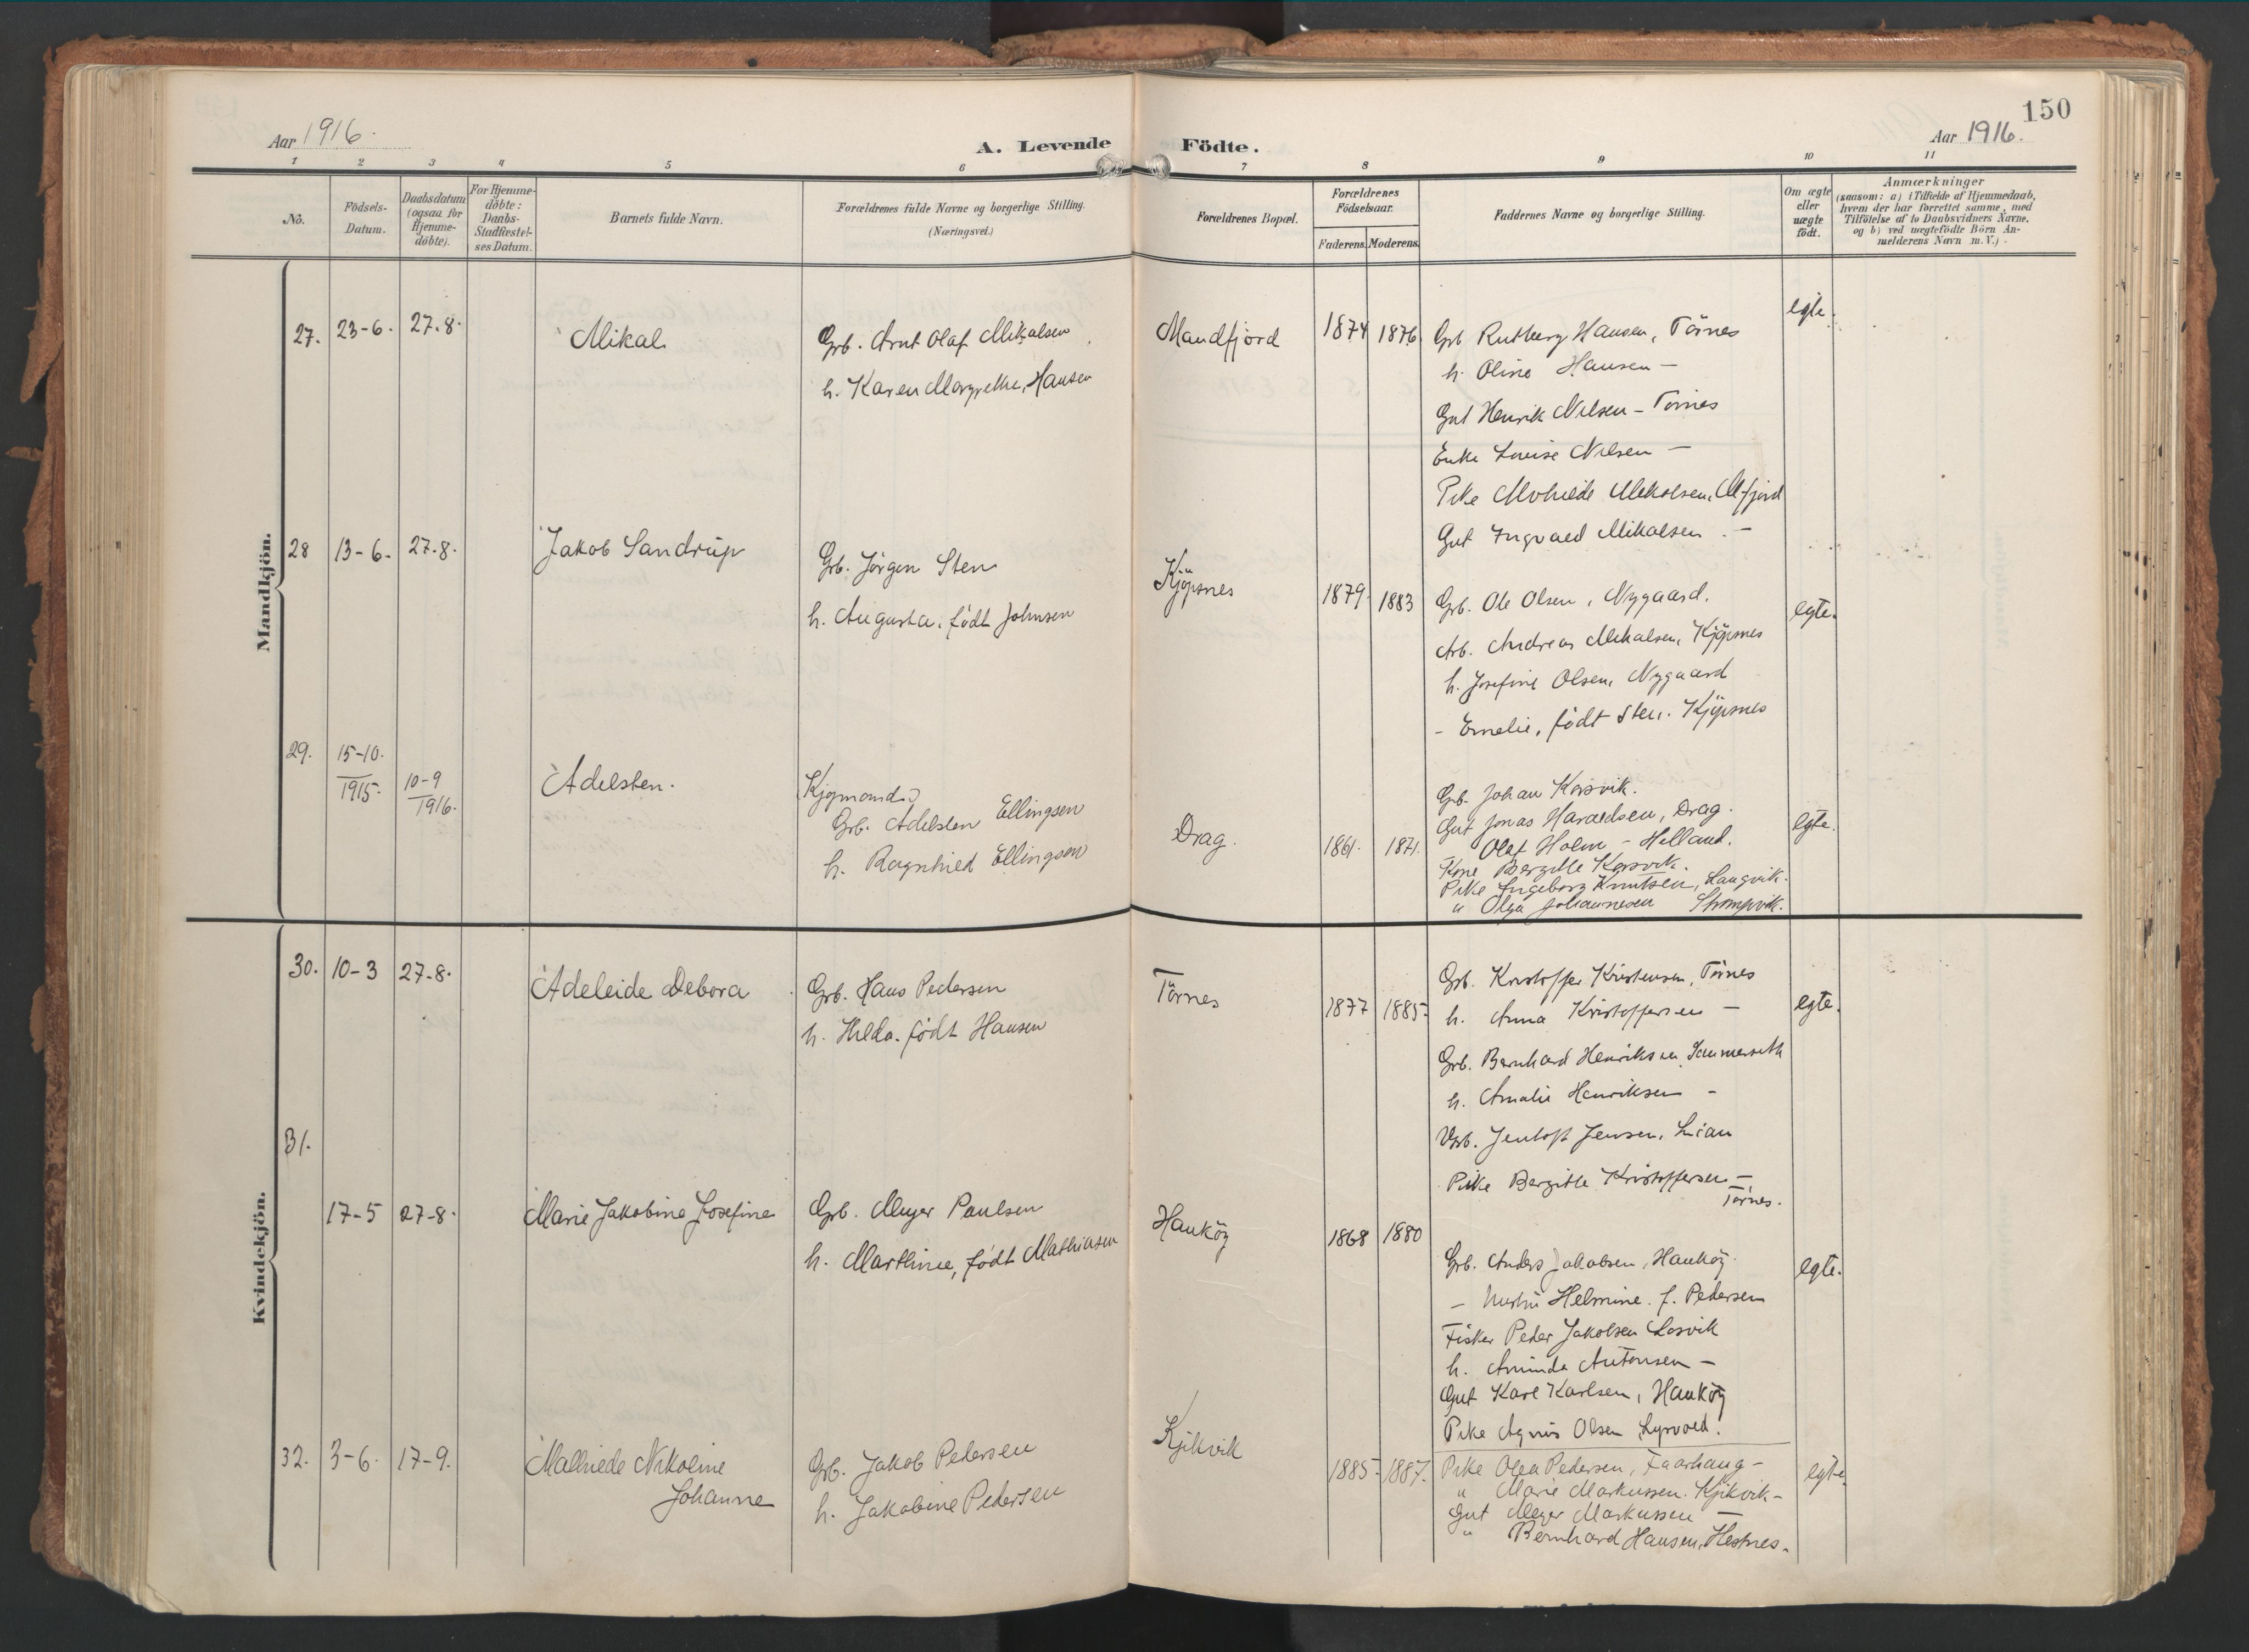 150
Aar 1916.
A. Levende Födte.
Aar 1916.
1 2 3 4 5 6 7 8 9 10 11
No.
Födsels-
Datum.
Daabsdatum
(ogsaa for
Hjemme-
döbte).
For Hjemme-
döbte:
Daabs-
Stadfæstel-
ses Datum.
Barnets fulde Navn.
Forældrenes fulde Navne og borgerlige Stilling.
(Næringsvei.)
Forældrenes Bopæl.
Forældrenes
Födselsaar.
Faderens. Moderens.
Faddernes Navne og borgerlige Stilling.
Om ægte
eller
uægte
födt.
Anmærkninger
(saasom: a) i Tilfælde af Hjemmedaab,
hvem der har forrettet samme, med
Tilföielse af to Daabsvidners Navne,
og b) ved uægtefödte Börn An-
melderens Navn m. V.)
Mandkjön.
27. 23-6. 27.8. Mikal.
Grb. Arnt Olaf Mikalsen
h. Karen Margrethe, Hansen
Mandfjord 1874 1876
Grb Rutberg Hansen, Törnes
h. Oline Hansen –
Gut Henrik Nilsen – Törnes
Enke Lovise Nilsen –
Pike Mikalsen, M.fjord
Gut Ingvald Mikalsen –
egte.
28 13-6. 27.8. Jakob Sandrup
Grb. Jörgen Sten
h. Augusta, födt Johnsen
Kjöpsnes 1879. 1883
Grb. Ole Olsen, Nygaard.
Arb. Andreas Mikalsen, Kjöpsnes
h. Josefine Olsen, Nygaard
– Emelie, födt Sten. Kjöpsnes
egte.
29. 15-10. 1915. 10-9 1916. Adelsten.
Grb. Adelsten Ellingsen
h. Ragnhild Ellingsen
Drag. 1861. 1871.
Grb. Johan Korsvik.
Gut Jonas Haraldsen, Drag.
Olaf Holm – Helland.
Kone Bergitte Korsvik.
Pike Ingeborg Knutsen, Langvik.
" Olga Johannesen
egte.
Kvindekjön.
30. 10-3 27-8. Adeleide Debora
Grb. Hans Pedersen
h. Hilda. födt Hansen
Törnes 1877 1885.
Grb. Kristoffer Kristensen, Törnes
h. Anna Kristoffersen –
Grb. Bernhard Henriksen Sommerseth
h. Amalie Henriksen –
Jentoft Jensen,
Pike Bergitte Kristoffersen –
Törnes.
egte.
31.
17-5 27-8. Marie Jakobine Josefine
Grb. Meyer Paulsen
h. Marthine, födt Mathiasen
Hauköy 1868 1880
Grb. Anders Jakobsen, Hauköy.
– Hustru Helmine. f. Pedersen
Fisker Peder Jakobsen Losvik
h. Aminda Antonsen –
Gut Karl Karlsen, Hauköy
Pike Agnes Olsen
egte.
32. 3-6. 17-9. Malhilde Nikoline
Johanne
Grb. Jakob Pedersen
h. Jakobine Pedersen
Kjikvik 1885. 1887.
Pike Olea Pedersen, Faarhaug –
" Marie Markussen. Kjikvik –
Gut Meyer Markussen –
" Bernhard Hansen, Hestnes.
egte.